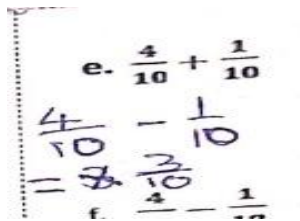 e. 4/10 + 1/10
4/10 - 1/10
= 3/10
f. 4 - 1